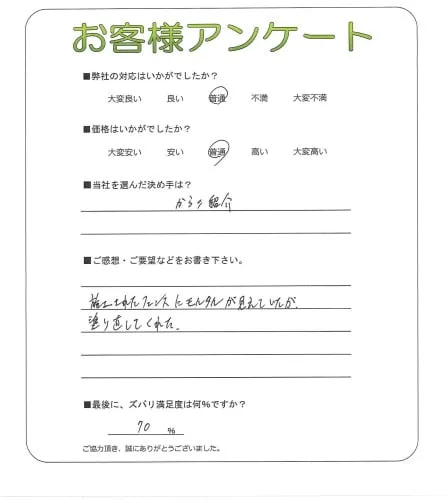 お客様アンケート
■弊社の対応はいかがでしたか？
大変良い 良い 普通 不満 大変不満
■価格はいかがでしたか？
大変安い 安い 普通 高い 大変高い
■当社を選んだ決め手は？
紹介
■ご感想・ご要望などをお書き下さい。
施工されたフェンスにモルタルが見えていたが、
塗り直してくれた。
■最後に、ズバリ満足度は何％ですか？
70 ％
ご協力頂き、誠にありがとうございました。